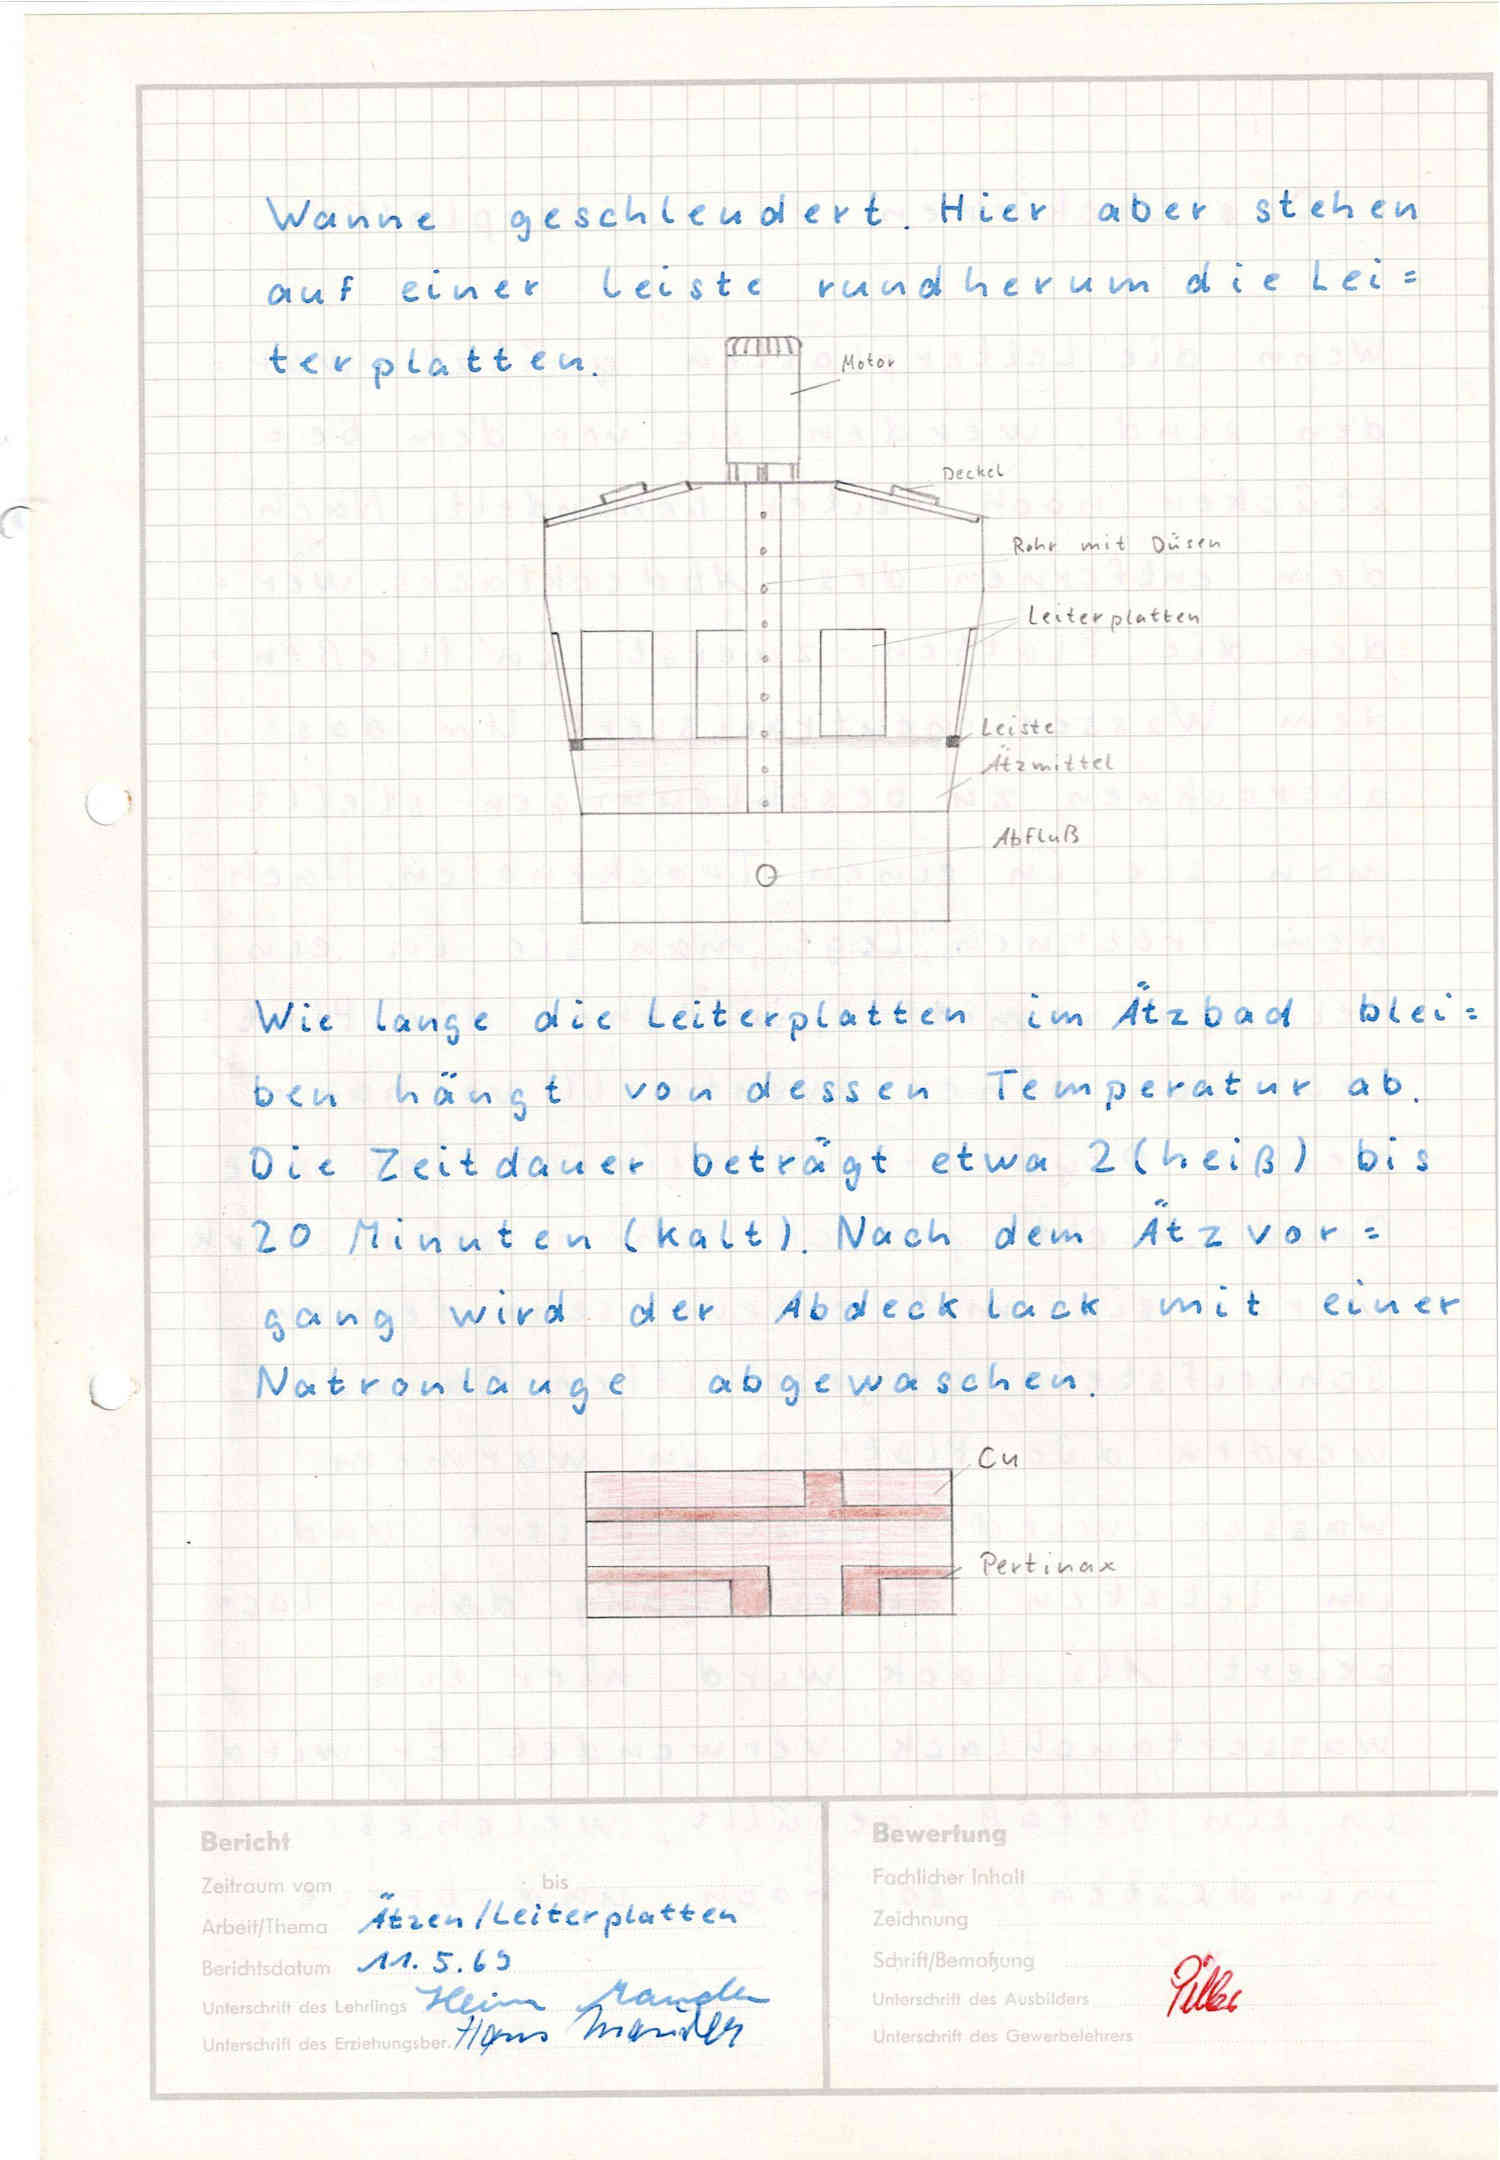 Wanne geschleudert. Hier aber stehen
auf einer Leiste rundherum die Lei=
terplatten.
Motor
Deckel
Rohr mit Düsen
Leiterplatten
Leiste
Ätzmittel
Abfluß
Wie lange die Leiterplatten im Ätzbad blei=
ben hängt von dessen Temperatur ab.
Die Zeitdauer beträgt etwa 2 (heiß) bis
20 Minuten (kalt). Nach dem Ätzvor=
gang wird der Abdecklack mit einer
Natronlauge abgewaschen.
Cu
Pertinax
Bericht
Zeitraum vom bis
Arbeit/Thema Ätzen/Leiterplatten
Berichtsdatum 11.5.69
Unterschrift des Lehrlings
Unterschrift des Erziehungsber. Hans
Bewertung
Fachlicher Inhalt
Zeichnung
Schrift/Bemaßung
Unterschrift des Ausbilders
Unterschrift des Gewerbelehrers